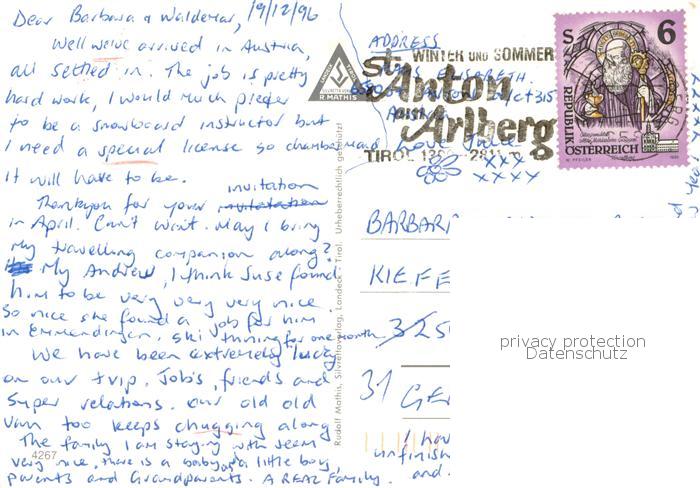 Dear Barbara & Waldemar, 19/12/96
Well weive arrived in Austria,
all settled in. The job is pretty
hard work, I would much prefer
to be a snowboard instructor but
I need a special license so chambermaid
it will have to be.
invitation
Thankyou for your
in April. Can't wait. May I bring
my travelling companion along?
My Andrew, I think Suse found
him to be very very very nice.
So nice she found a job for him
in Emmendingen, ski tuning for one month.
We have been extremely lucky
on our trip. Jobs, friends and
super relations. Our old old
van too keeps chugging along.
The family I am staying with seem
very nice, there is a baby and a little boy,
parents and Grandparents. A REAL Family.
4267
R MATHIS
Rudolf Mathis, Silvrettaverlag, Landeck - Tirol. Urheberrechtlich geschützt
ADDRESS
ELISABETH
WINTER UND SOMMER
St. Anton
am Arlberg
TIROL
love Julie
xxx
xxxx
S 6
REPUBLIK
ÖSTERREICH
BARBAR
KIEFE
325
31 GE
I hav
unfinish
and
privacy protection
Datenschutz